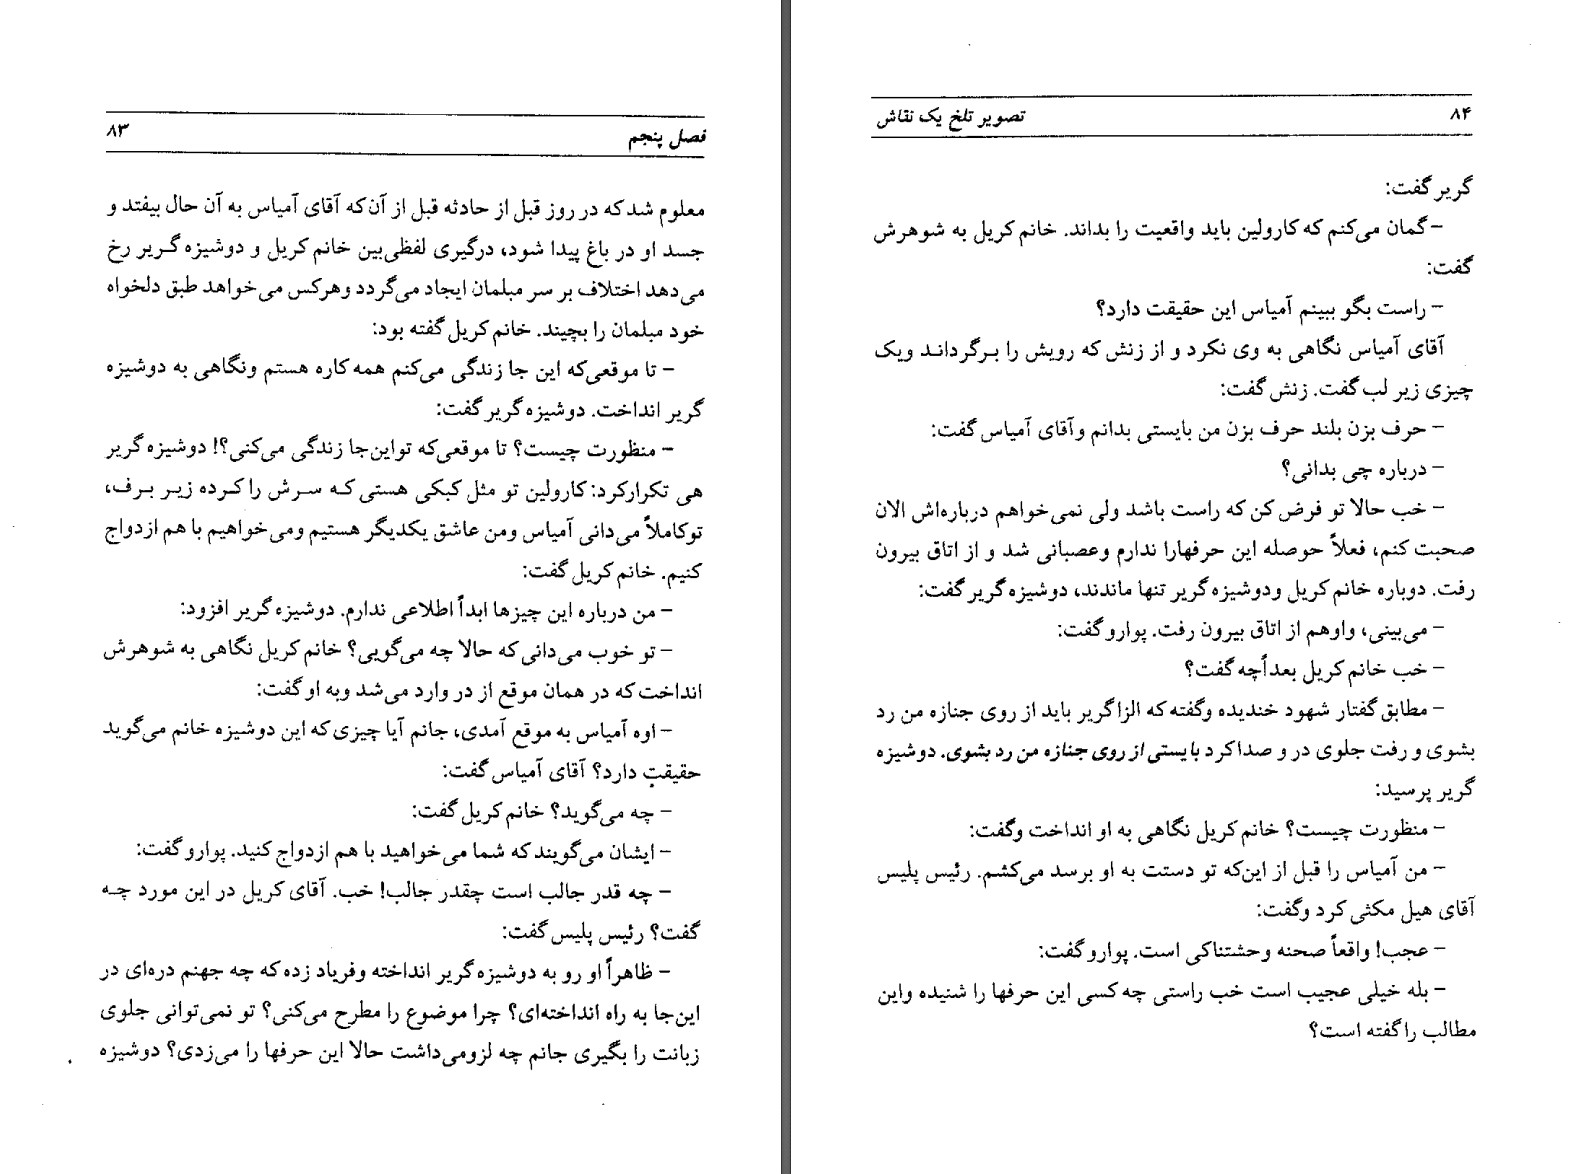 فصل پنجم ۸۳
معلوم شد که در روز قبل از حادثه قبل از آن‌که آقای آمیاس به آن حال بیفتد و
جسد او در باغ پیدا شود، درگیری لفظی‌بین خانم کریل و دوشیزه گریر رخ
می‌دهد اختلاف بر سر مبلمان ایجاد می‌گردد وهرکس می‌خواهد طبق دلخواه
خود مبلمان را بچیند. خانم کریل گفته بود:
– تا موقعی‌که این جا زندگی می‌کنم همه کاره هستم ونگاهی به دوشیزه
گریر انداخت. دوشیزه گریر گفت:
– منظورت چیست؟ تا موقعی‌که تواین‌جا زندگی می‌کنی؟! دوشیزه گریر
هی تکرارکرد: کارولین تو مثل کبکی هستی که سرش را کرده زیر برف،
توکاملاً می‌دانی آمیاس ومن عاشق یکدیگر هستیم ومی‌خواهیم با هم ازدواج
کنیم. خانم کریل گفت:
– من درباره این چیزها ابداً اطلاعی ندارم. دوشیزه گریر افزود:
– تو خوب می‌دانی که حالا چه می‌گویی؟ خانم کریل نگاهی به شوهرش
انداخت که در همان موقع از در وارد می‌شد وبه او گفت:
– اوه آمیاس به موقع آمدی، جانم آیا چیزی که این دوشیزه خانم می‌گوید
حقیقت دارد؟ آقای آمیاس گفت:
– چه می‌گوید؟ خانم کریل گفت:
– ایشان می‌گویند که شما می‌خواهید با هم ازدواج کنید. پوارو گفت:
– چه قدر جالب است چقدر جالب! خب. آقای کریل در این مورد چه
گفت؟ رئیس پلیس گفت:
– ظاهراً او رو به دوشیزه گریر انداخته وفریاد زده که چه جهنم دره‌ای در
این‌جا به راه انداخته‌ای؟ چرا موضوع را مطرح می‌کنی؟ تو نمی‌توانی جلوی
زبانت را بگیری جانم چه لزومی‌داشت حالا این حرفها را می‌زدی؟ دوشیزه
۸۴ تصویر تلخ یک نقاش
گریر گفت:
– گمان می‌کنم که کارولین باید واقعیت را بداند. خانم کریل به شوهرش
گفت:
– راست بگو ببینم آمیاس این حقیقت دارد؟
آقای آمیاس نگاهی به وی نکرد و از زنش که رویش را برگرداند ویک
چیزی زیر لب گفت. زنش گفت:
– حرف بزن بلند حرف بزن من بایستی بدانم وآقای آمیاس گفت:
– درباره چی بدانی؟
– خب حالا تو فرض کن که راست باشد ولی نمی‌خواهم درباره‌اش الان
صحبت کنم، فعلاً حوصله این حرفهارا ندارم وعصبانی شد و از اتاق بیرون
رفت. دوباره خانم کریل ودوشیزه گریر تنها ماندند، دوشیزه گریر گفت:
– می‌بینی، واوهم از اتاق بیرون رفت. پوارو گفت:
– خب خانم کریل بعداًچه گفت؟
– مطابق گفتار شهود خندیده وگفته که الزا گریر باید از روی جنازه من رد
بشوی و رفت جلوی در و صدا کرد بایستی از روی جنازه من رد بشوی. دوشیزه
گریر پرسید:
– منظورت چیست؟ خانم کریل نگاهی به او انداخت وگفت:
– من آمیاس را قبل از این‌که تو دستت به او برسد می‌کشم. رئیس پلیس
آقای هیل مکثی کرد وگفت:
– عجب! واقعاً صحنه وحشتناکی است. پوارو گفت:
– بله خیلی عجیب است خب راستی چه کسی این حرفها را شنیده واین
مطالب را گفته است؟